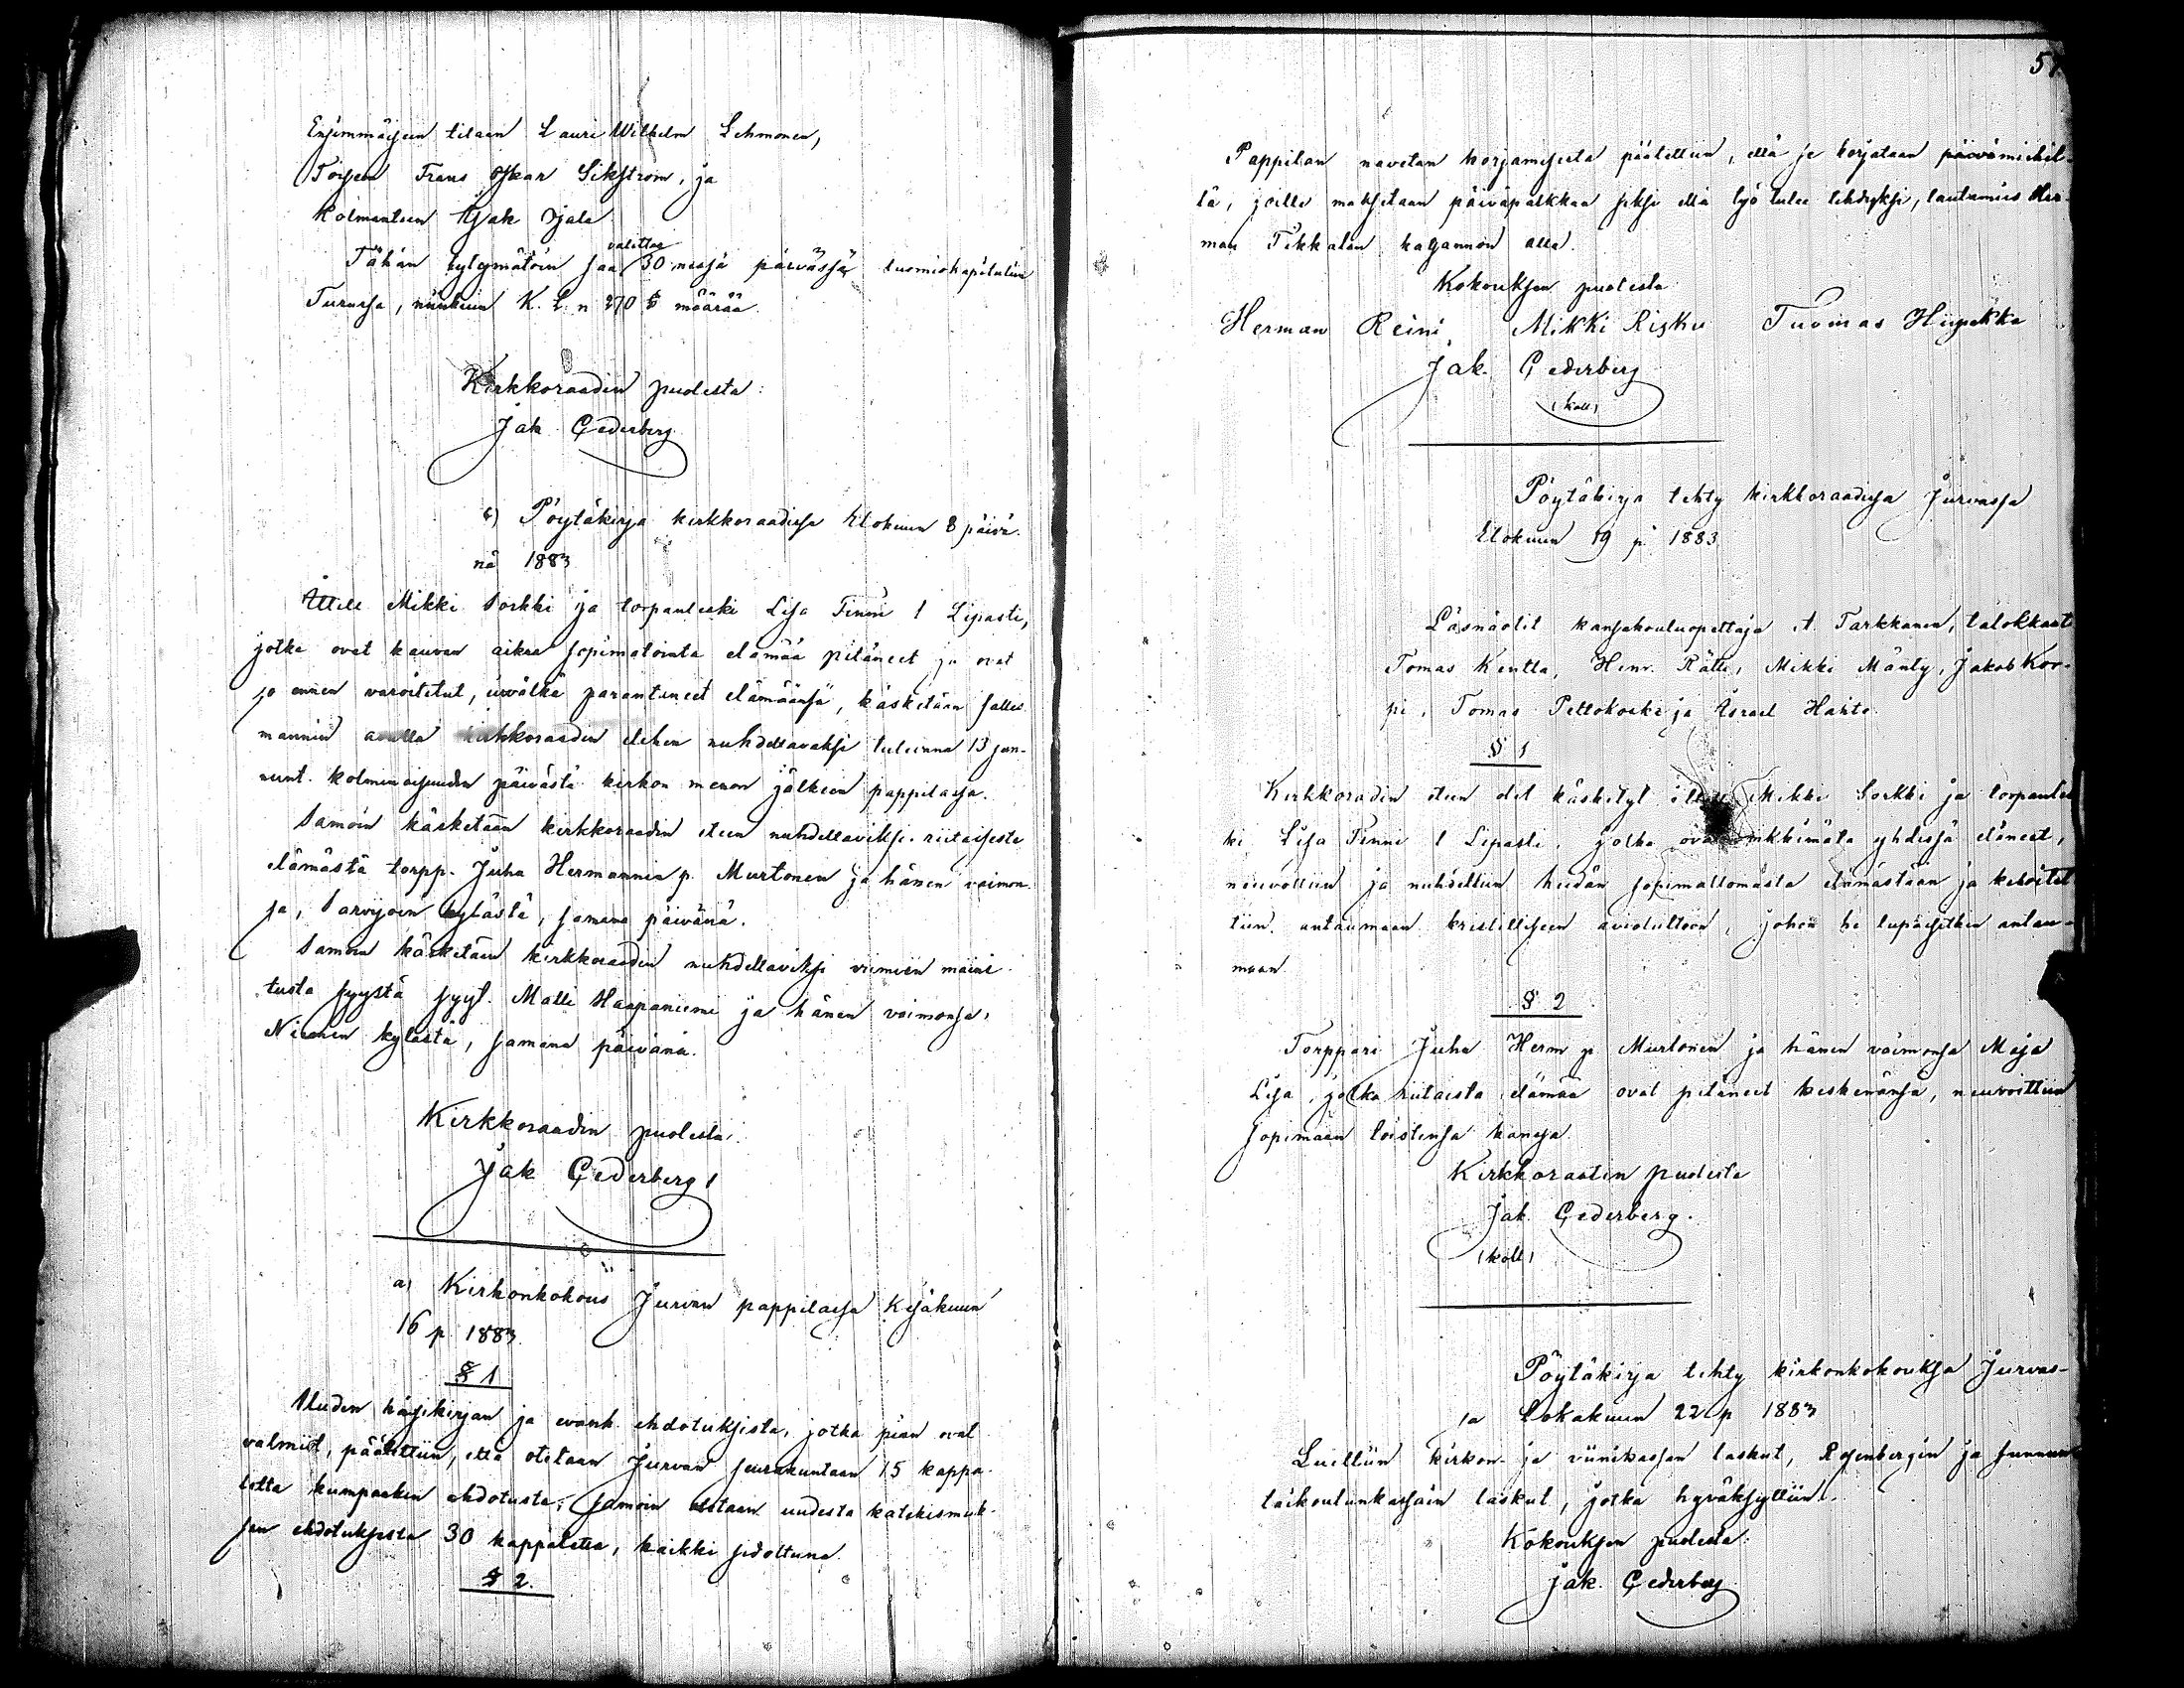 Ensimmäiseen tilaan Lauri Wilhelm Lehmonen,
Toiseen Frans Oskar Sikström, ja
Kolmanteen Isak Ojala
valittaa
Tähän tytymätöin saa 30 nessä päivässä tuomiokapituliin
Turussa, niinkuin K. L. n 270 § määrää.
Kirkkoraadin puolesta:
Jak Cederberg
c) Pöytäkirja kirkkoraadissa Elokuun 8 päivä-
nä 1883
Mikki Sorkki ja torpanleski Lisa Finni l Lepasti,
jotka ovat kauvan aikaa sopimatointa elämää pitäneet ja ovat
jo ennen varoitetut, eivätkä parantaneet elämäänsä, käsketään
mannin avulla kirkkoraadin etehen nuhdeltavaksi tulevana 13 sun-
nunt. kolminaisuuden päivästä kirkon menon jälkeen pappilassa.
Samoin käsketään kirkkoraadin eteen nuhdeltaviksi riitaisesta
elämästä torpp. Juha Hermannin p. Murtonen ja hänen vaimon-
sa, Sarvijoen kylästä, samana päivänä.
Samoin käsketään kirkkoraadin nuhdeltaviksi viimein maini-
tusta syystä syyt. Matti Haapaniemi ja hänen vaimonsa,
Niemen kylästä, samana päivänä.
Kirkkoraadin puolesta:
Jak Cederberg
a) Kirkonkokous Jurvan pappilassa Kesäkuun
16 p 1883
§ 1
Uuden käsikirjan ja evank. ehdotuksista, jotka pian ovat
valmiit, päätettiin, että otetaan Jurvan seurakuntaan 15 kappa-
letta kumpaakin ehdotusta; samoin otetaan uudesta katekismuk-
sen ehdotuksesta 30 kappaletta, kaikki sidottuna.
§ 2.
57.
Pappilan navetan korjamisesta päätettiin, että se korjataan päivämiehil-
lä, joille maksetaan päiväpalkkaa siksi että työ tulee tehdyksi, lautamies Her-
man Tikkalan katsannon alla.
Kokouksen puolesta
Herman Reini, Mikki Risku Tuomas Hiipakka
Jak. Cederberg
(koll)
Pöytäkirja tehty kirkkoraadissa Jurvassa
Elokuun 19 p 1883
Läsnäolit kansakouluopettaja A. Tarkkanen, talokkaat
Tomas Kentta, Henr. Rätti, Mikki Mänty, Jakob Kor-
pi, Tomas Peltokoski ja Israel Harto.
§ 1
Kirkkoradin eteen olit käsketyt Mikki Sorkki ja torpanles
ki Lisa Finni l Lepasti, jotka ovat vihkimätä yhdessä eläneet,
neuvottiin ja nuhdeltiin heidän sopimattomasta elämästään ja kehoitet
tiin antaumaan kristilliseen avioliittoon, johon he lupasitkin antau-
maan.
§ 2
Torppari Juha Herm p Murtonen ja hänen vaimonsa Maja
Lisa, jotka riitaista elämää ovat pitäneet keskenänsä, neuvottiin
sopimaan toistensa kanssa.
Kirkkoraatin puolesta
Jak Cederberg.
(koll)
Pöytäkirja tehty kirkonkokouksa Jurvas-
sa Lokakuun 22 p 1883
Luettiin kirkon- ja viinikassan laskut, Rosenbergin ja sunnun
taikoulunkassain laskut, jotka hyväksyttiin.
Kokouksen puolesta:
Jak. Cederberg